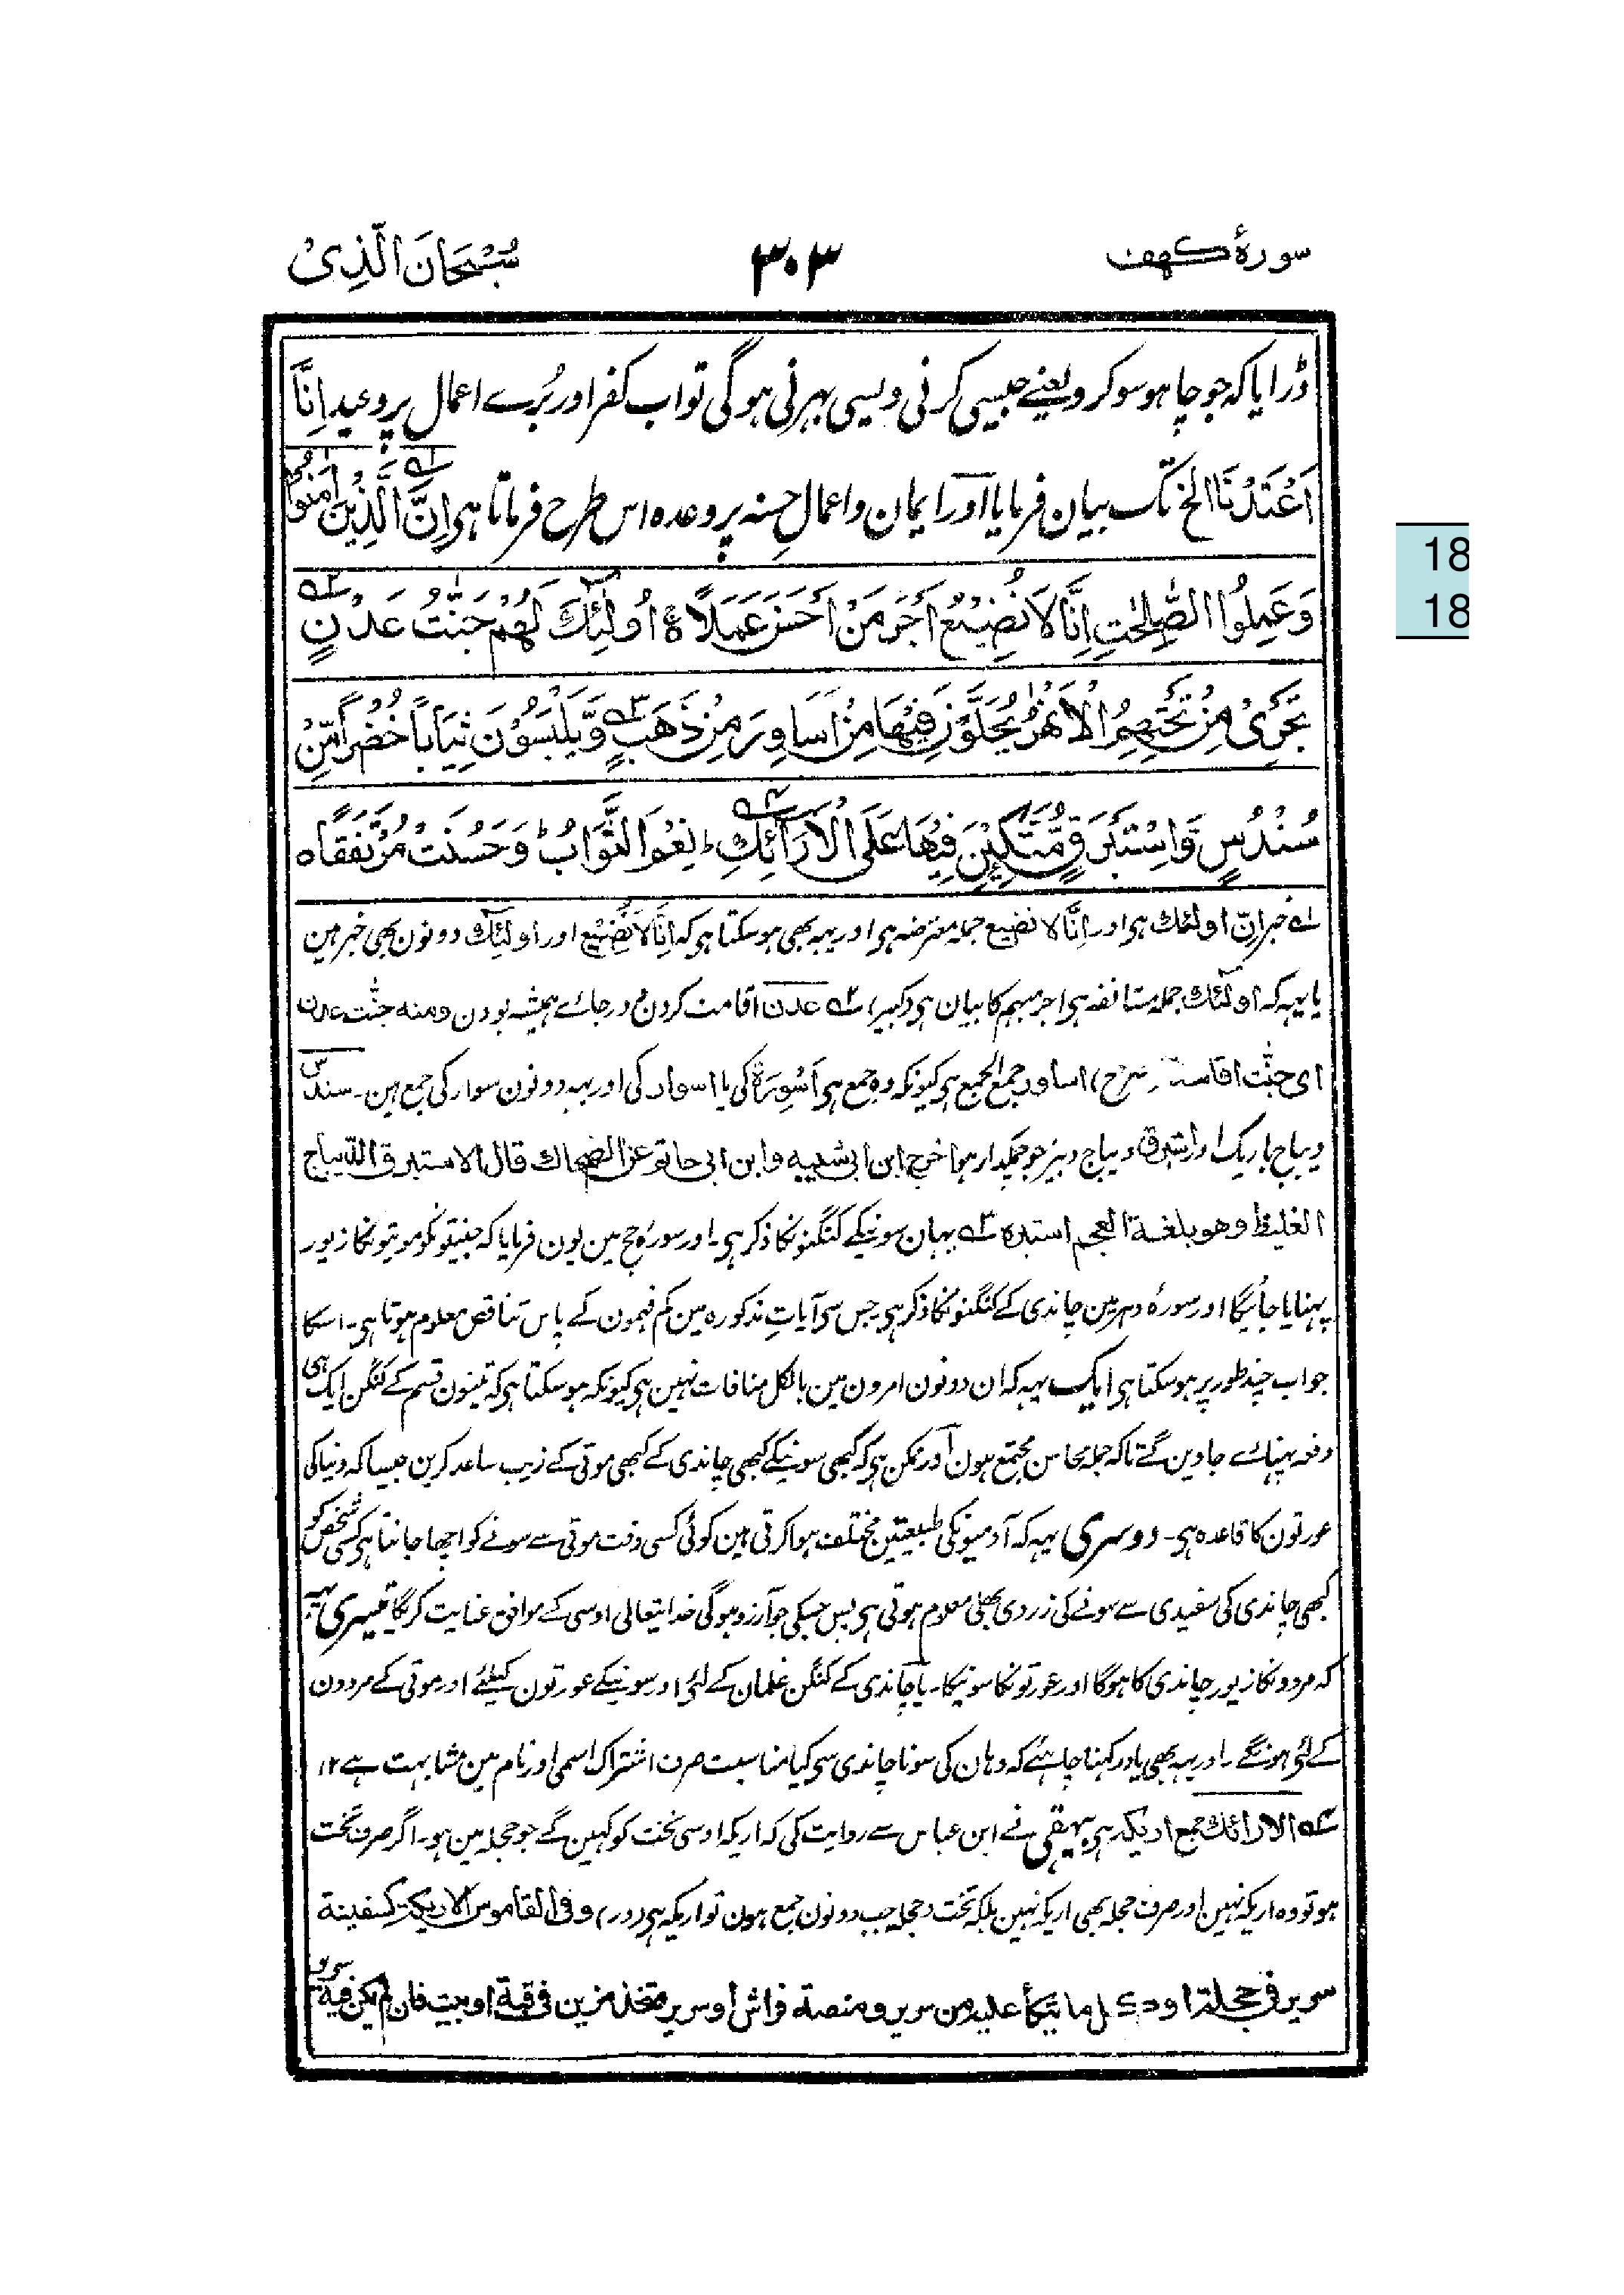 سورۂ کہف
۳۰۳
سُبْحَانَ الَّذِیْ
ڈرایا کہ جو چاہو سو کرو یعنے جیسی کرنی ویسی بھرنی ہوگی تو اب کفر اور بُرے اعمال پر وعید اِنَّا
اَعْتَدْنَا الخ تک بیان فرمایا اور ایمان و اعمالِ حسنہ پر وعدہ اس طرح فرماتا ہی اِنَّ الَّذِیْنَ اٰمَنُوْا
وَعَمِلُوا الصّٰلِحٰتِ اِنَّا لَا نُضِیْعُ اَجْرَ مَنْ اَحْسَنَ عَمَلًا ۃ اُولٰٓئِكَ لَهُمْ جَنّٰتُ عَدْنٍ
تَجْرِیْ مِنْ تَحْتِهِمُ الْاَنْهٰرُ یُحَلَّوْنَ فِیْهَا مِنْ اَسَاوِرَ مِنْ ذَهَبٍ وَّیَلْبَسُوْنَ ثِیَابًا خُضْرًا مِّنْ
سُنْدُسٍ وَّاِسْتَبْرَقٍ مُّتَّكِئِیْنَ فِیْهَا عَلَی الْاَرَآئِكِ ؕ نِعْمَ الثَّوَابُ ؕ وَحَسُنَتْ مُرْتَفَقًا ہ
۱ے خبر اِنّ اولئك ہی اور اِنَّا لا نضیع جملہ معترضہ ہی اور یہہ بھی ہو سکتا ہی کہ اِنَّا لَا نُضِیْع اور اولٰئك دونون بھی خبر ہین
یا یہہ کہ اولٰئك جملہ مستانفہ ہی اجر مبہم کا بیان ہی (کبیر) ۲ے عدن اقامت کردن در جائے ہمیشہ بودن و منہ جنّت عدن
ای جنّت اقامت (صرح) اساور جمع الجمع ہی کیونکہ وہ جمع ہی اَسْوِرَۃ کی یا اسوار کی اور یہہ دونون سوار کی جمع ہین۔ سندس
دیباج باریک اور استبرق دیباج دبیز جو چمکدار ہو اخرج ابن ابی شیبہ و ابن ابی حاتم عن الضحاك قال الاستبرق الدیباج
الغلیظ وھو بلغۃ العجم استبرہ ۳ے یہان سونیکے کنگنونکا ذکر ہی۔ اور سورۂ حج مین یون فرمایا کہ جنتیونکو موتیونکا زیور
پہنایا جائیگا اور سورۂ دہر مین چاندی کے کنگنونکا ذکر ہی جس سی آیاتِ مذکورہ مین کم فہمون کے پاس تناقض معلوم ہوتا ہی۔ اسکا
جواب چند طور پر ہو سکتا ہی ایک یہہ کہ ان دونون امرون مین بالکل منافات نہین ہی کیونکہ ہو سکتا ہی کہ تینون قسم کے کنگن ایک ہی
دفعہ پہنائے جاوین گے تاکہ جملہ محاسن مجتمع ہون اور ممکن ہی کہ کبھی سونیکے کبھی چاندی کے کبھی موتی کے زیب ساعد کرین جیسا کہ دنیا کی
عورتون کا قاعدہ ہی۔ دوسری یہہ کہ آدمیونکی طبیعتین مختلف ہوا کرتی ہین کوئی کسی وقت موتی سے سونے کو اچھا جانتا ہی کسی شخص کو
کبھی چاندی کی سفیدی سے سونے کی زردی بھلی معلوم ہوتی ہی پس جسکی جو آرزو ہوگی خدا یتعالی اوسی کے موافق عنایت کریگا تیسری یہہ
کہ مردونکا زیور چاندی کا ہوگا اور عورتونکا سونیکا۔ یا چاندی کے کنگن غلمان کے لئی اور سونیکے عورتون کیلئے اور موتی کے مردون
کے لئی ہونگے۔ اور یہہ بھی یاد رکہنا چاہئے کہ وہان کی سونا چاندی سی کیا مناسبت صرف اشتراک اسمی اور نام مین مشابہت ہے ۱۲
۴ے الارائك جمع اریکہ ہی بیہقی نے ابن عباس سے روایت کی کہ اریکہ اوسی تخت کو کہین گے جو حجلہ مین ہو۔ اگر صرف تخت
ہو تو وہ اریکہ نہین اور صرف حجلہ بھی اریکہ نہین بلکہ تخت و حجلہ جب دونون جمع ہون تو اریکہ ہی (در) وفی القاموس الاریکۃ کسفینۃ
سریر فی حجلۃ او کل ما یتکأ علیہ من سریر و منصۃ فراش او سریر متخذ مزین فی قبۃ او بیت فان لم یکن فیہ سریر
18
18